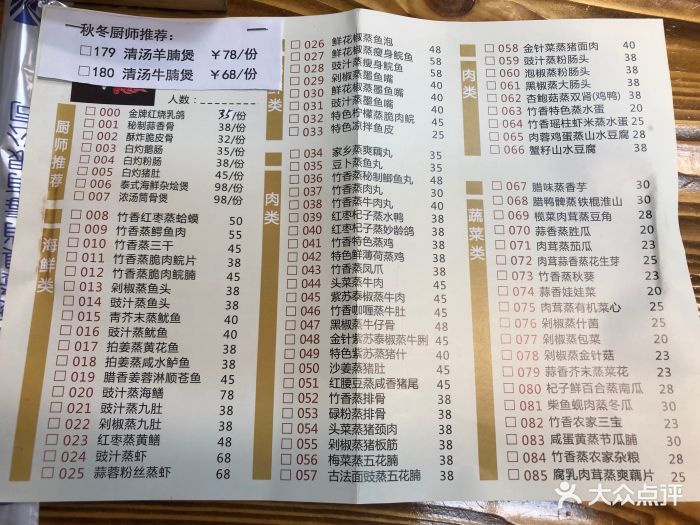 秋冬厨师推荐：
□179 清汤羊腩煲 ￥78/份
□180 清汤牛腩煲 ￥68/份
人数：
厨师推荐
□ 000 金牌红烧乳鸽 35/份
□ 001 秘制蒜香骨 38/份
□ 002 酥炸脆皮骨 32/份
□ 003 白灼鹅肠 38/份
□ 004 白灼粉肠 38/份
□ 005 白灼猪肚 45/份
□ 006 泰式海鲜杂烩煲 98/份
□ 007 浓汤筒骨煲 98/份
海鲜类
□ 008 竹香红枣蒸蛤蟆 50
□ 009 竹香蒸鳄鱼肉 55
□ 010 竹香蒸三干 45
□ 011 竹香蒸脆肉鱼片 38
□ 012 竹香蒸脆肉鲩腩 45
□ 013 剁椒蒸鱼头 38
□ 014 豉汁蒸鱼头 38
□ 015 青芥末蒸鱿鱼 40
□ 016 豉汁蒸鱿鱼 40
□ 017 拍姜蒸黄花鱼 38
□ 018 拍姜蒸咸水鲈鱼 38
□ 019 腊香姜蓉淋顺苍鱼 45
□ 020 豉汁蒸海鳝 78
□ 021 豉汁蒸九肚 38
□ 022 剁椒蒸九肚 38
□ 023 红枣蒸黄鳝 48
□ 024 豉汁蒸虾 68
□ 025 蒜蓉粉丝蒸虾 68
类
□ 026 鲜花椒蒸鱼泡 48
□ 027 鲜花椒蒸瘦身鲩鱼
□ 028 豉汁蒸瘦身鲩鱼
□ 029 剁椒蒸墨鱼嘴
□ 030 鲜花椒蒸墨鱼嘴
□ 031 豉汁蒸墨鱼嘴
□ 032 特色柠檬蒸脆肉鲩
□ 033 特色凉拌鱼皮
肉类
□ 034 家乡蒸爽藕丸 35
□ 035 豆卜蒸鱼丸 35
□ 036 竹香蒸秘制鲫鱼丸
□ 037 竹香蒸肉丸
□ 038 竹香蒸牛肉丸
□ 039 红枣杞子蒸水鸭
□ 040 红枣杞子蒸妙龄鸽
□ 041 竹香特色蒸鸡
□ 042 特色鲜薄荷蒸鸡
□ 043 竹香蒸凤爪
□ 044 头菜蒸牛肉
□ 045 紫苏泰椒蒸牛肉
□ 046 竹香咖喱蒸牛肚
□ 047 黑椒蒸牛仔骨 48
□ 048 金针紫苏泰椒蒸牛脷 55
□ 049 特色紫苏蒸猪什 40
□ 050 沙姜蒸猪肚 45
□ 051 红腰豆蒸咸香猪尾 45
□ 052 竹香蒸排骨 38
□ 053 碌粉蒸排骨 38
□ 054 头菜蒸猪颈肉 38
□ 055 剁椒蒸猪板筋 38
□ 056 梅菜蒸五花腩 38
□ 057 古法面豉蒸五花腩 38
肉类
□ 058 金针菜蒸猪面肉 40
□ 059 豉汁蒸粉肠头 38
□ 060 泡椒蒸粉肠头 38
□ 061 黑椒蒸大肠头 38
□ 062 杏鲍菇蒸双肾(鸡鸭) 38
□ 063 竹香特色蒸水蛋 20
□ 064 竹香瑶柱虾米蒸水蛋 28
□ 065 肉蓉鸡蛋蒸山水豆腐 28
□ 066 蟹籽山水豆腐 38
蔬菜类
□ 067 腊味蒸香芋 30
□ 068 腊鸭髀蒸铁棍淮山 30
□ 069 榄菜肉茸蒸豆角 28
□ 070 蒜香蒸胜瓜 28
□ 071 肉茸蒸茄瓜 28
□ 072 肉茸蒜香蒸花生芽 28
□ 073 竹香蒸秋葵 28
□ 074 蒜香娃娃菜 20
□ 075 肉茸蒸有机菜心 25
□ 076 剁椒蒸什菌 25
□ 077 剁椒蒸包菜 20
□ 078 剁椒蒸金针菇 23
□ 079 蒜香芥末蒸菜花 23
□ 080 杞子鲜百合蒸南瓜 28
□ 081 柴鱼蚬肉蒸冬瓜 30
□ 082 竹香农家三宝 23
□ 083 咸蛋黄蒸节瓜脯 30
□ 084 竹香蒸农家杂粮 28
□ 085 腐乳肉茸蒸爽藕片 25
大众点评